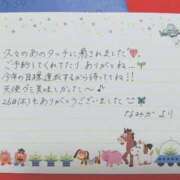 久々のあのタッチに癒されました
ご予約してくれたり、ありがとう!!
今年の目標達成するから待っててね!!
天使グミ美味しかした〜♪
26日(木)もありがとうございました
なみか より